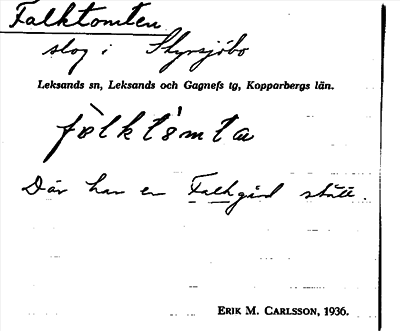 Falktomten
slog i Styrsjöbo
Leksands sn, Leksands och Gagnefs tg, Kopparbergs län.
fòlktómta
Där har en Falkgård stått.
ERIK M. CARLSSON, 1936.